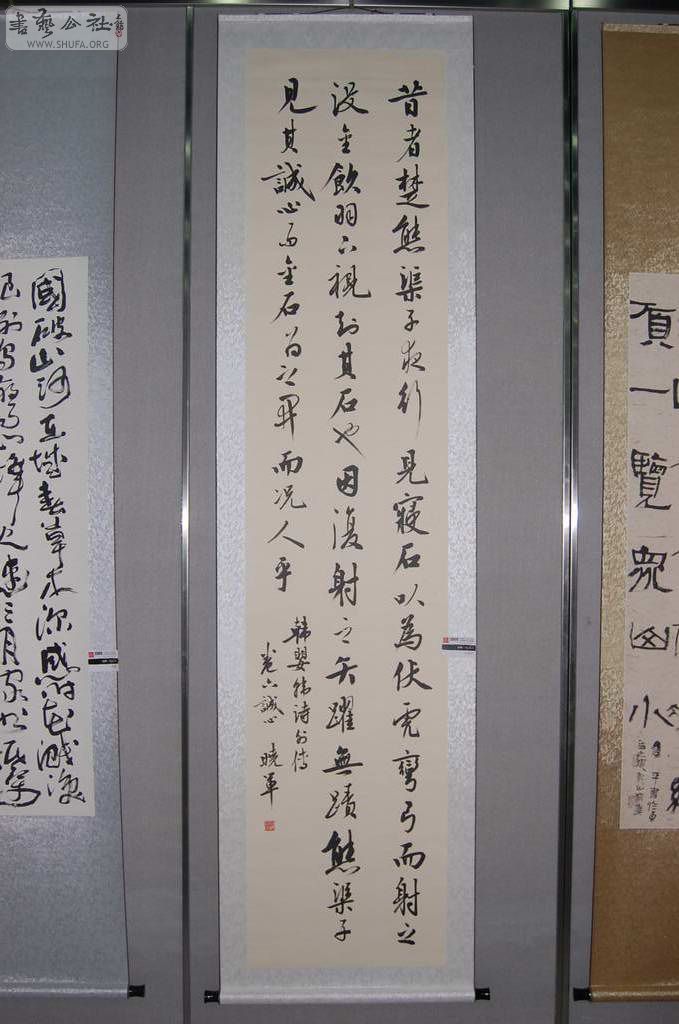 書藝公社
WWW.SHUFA.ORG
昔者楚熊渠子夜行見寢石以為伏虎彎弓而射之
没金飲羽下視知其石也因復射之矢躍無蹟熊渠子
見其誠心而金石為之開而况人乎
韓嬰韓詩外傳
卷六誠心 曉軍
國破山河在城春草木深感時花濺淚
恨別鳥驚心烽火連三月家書抵萬
頂一覽眾山小